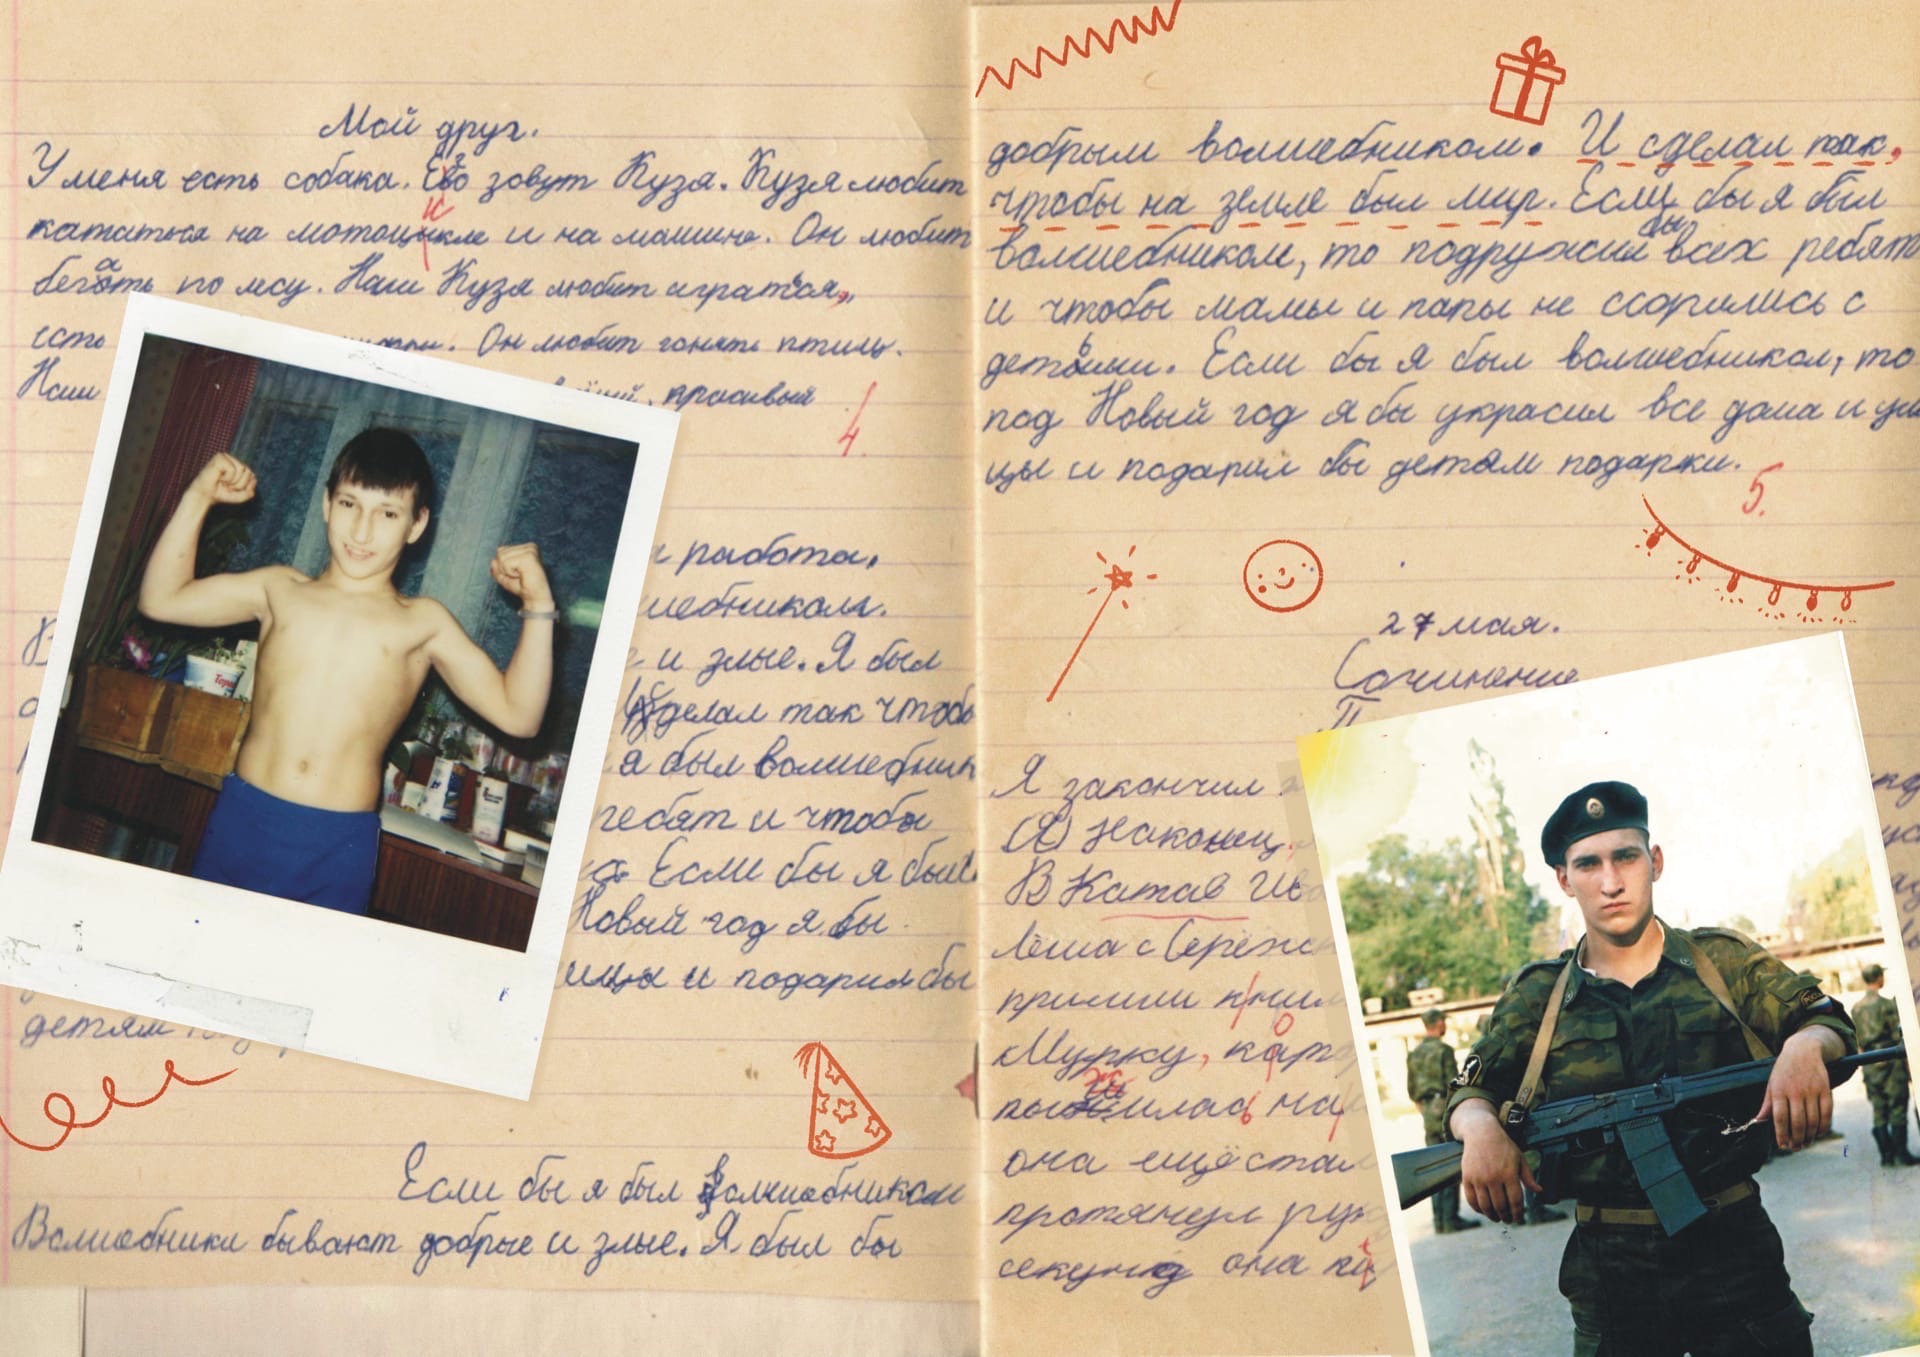 Мой друг.
У меня есть собака. Его зовут Кузя. Кузя любит
кататься на мотоцыкле и на машине. Он любит
и
бегать по лесу. Наш Кузя любит играться,
есть
Он любит гонять птиц.
Наш
красивый
4.
работа.
и злые. Я был
сделал так чтобы
я был волшебник
ребят и чтобы
Если бы я был
Новый год я бы
и подарил бы
детям
Если бы я был волшебником
Волшебники бывают добрые и злые. Я был бы
добрым волшебником. И сделал так,
чтобы на земле был мир. Если бы я был
волшебником, то подружил бы всех ребят
и чтобы мамы и папы не ссорились с
детьми. Если бы я был волшебником, то
под Новый год я бы украсил все дома и ули
цы и подарил бы детям подарки.
5.
27 мая.
Сочинение
Я закончил
(Я) Наконец
В Катав Ив
Лёша с Сереж
Мурку, кар
она ещё стал
протянул рук
секунд она